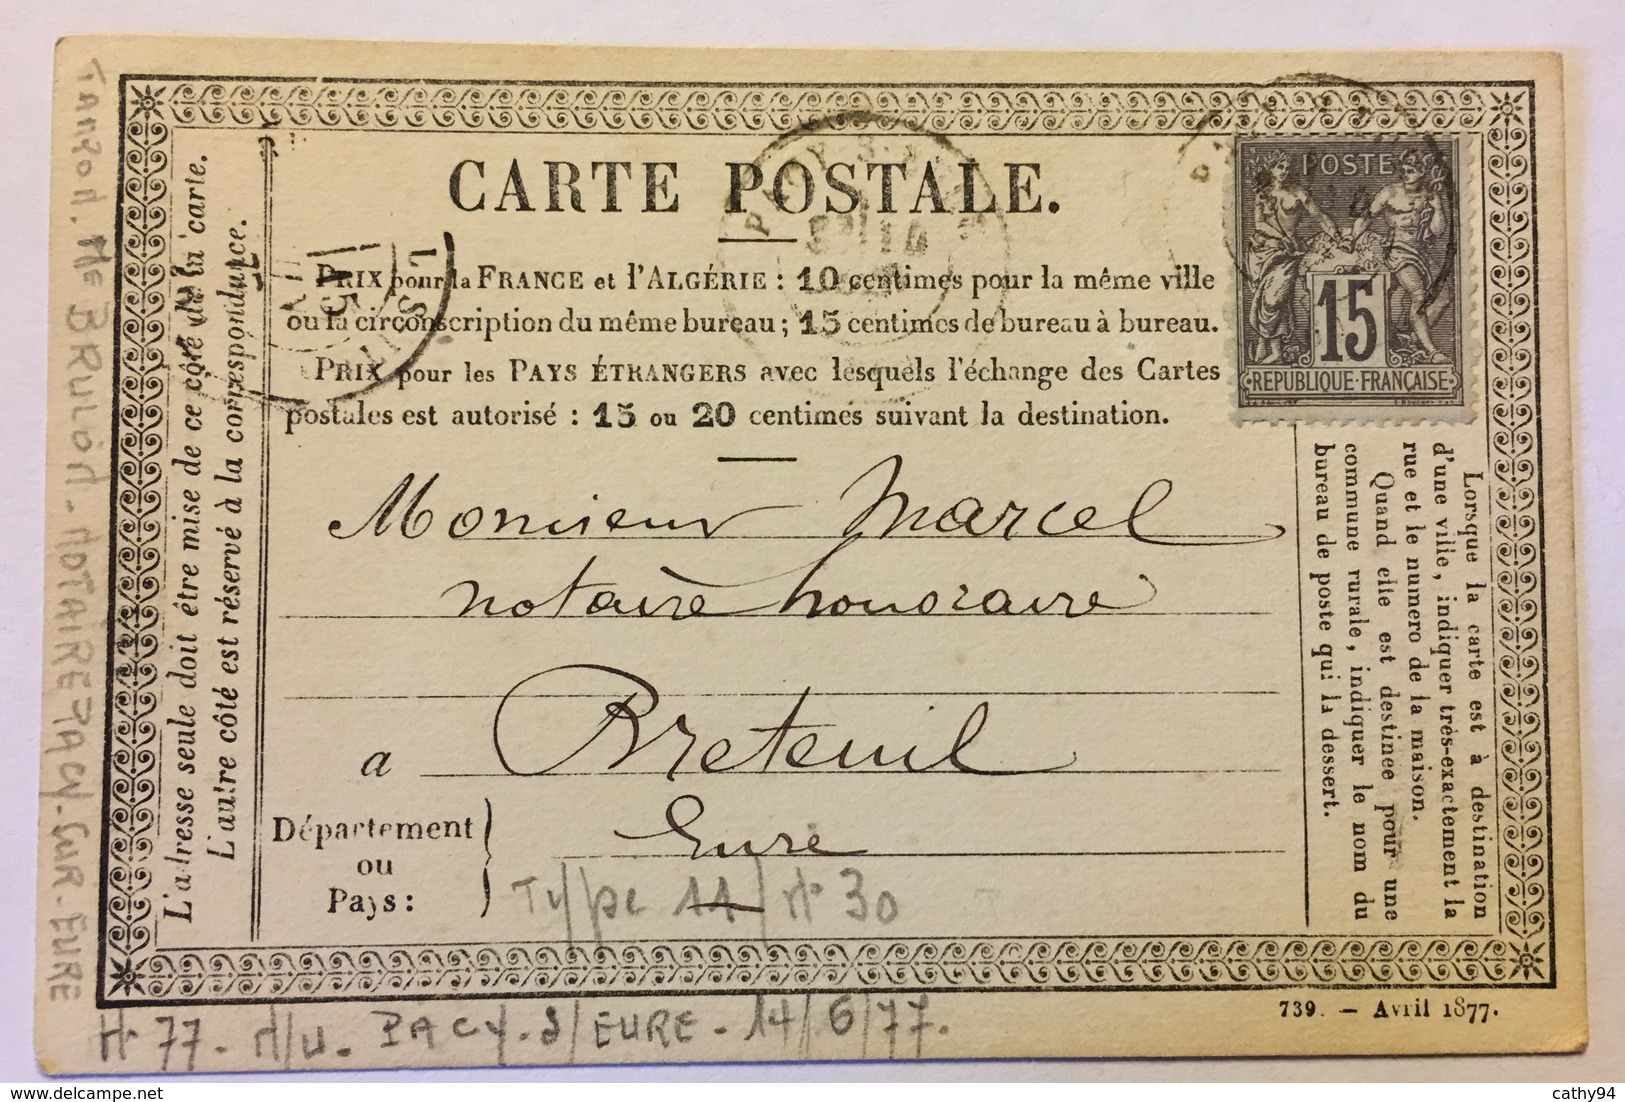 CARTE POSTALE.
PRIX pour la FRANCE et l'ALGÉRIE : 10 centimes pour la même ville
ou la circonscription du même bureau ; 15 centimes de bureau à bureau.
PRIX pour les PAYS ÉTRANGERS avec lesquels l'échange des Cartes
postales est autorisé : 15 ou 20 centimes suivant la destination.
POSTE
15
REPUBLIQUE-FRANÇAISE
PACY-S-
Monsieur Marcel
notaire honoraire
a Breteuil
Département
ou
Pays :
Eure
Type 11/ N° 30
L'adresse seule doit être mise de ce côté de la carte.
L'autre côté est réservé à la correspondance.
Lorsque la carte est à destination
d'une ville, indiquer trés-exactement la
rue et le numero de la maison.
Quand elle est destinée pour une
commune rurale, indiquer le nom du
bureau de poste qui la dessert.
739. — Avril 1877.
N. 77 - N/U - PACY. S/EURE - 14/6/77.
Me BRULON - NOTAIRE PACY-SUR-EURE
cathy94